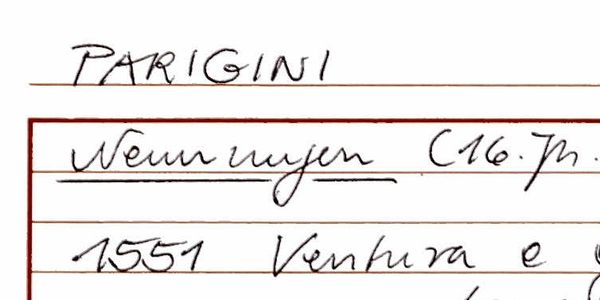 PARIGINI
Nennungen (16. Jh.
1551 Ventura e